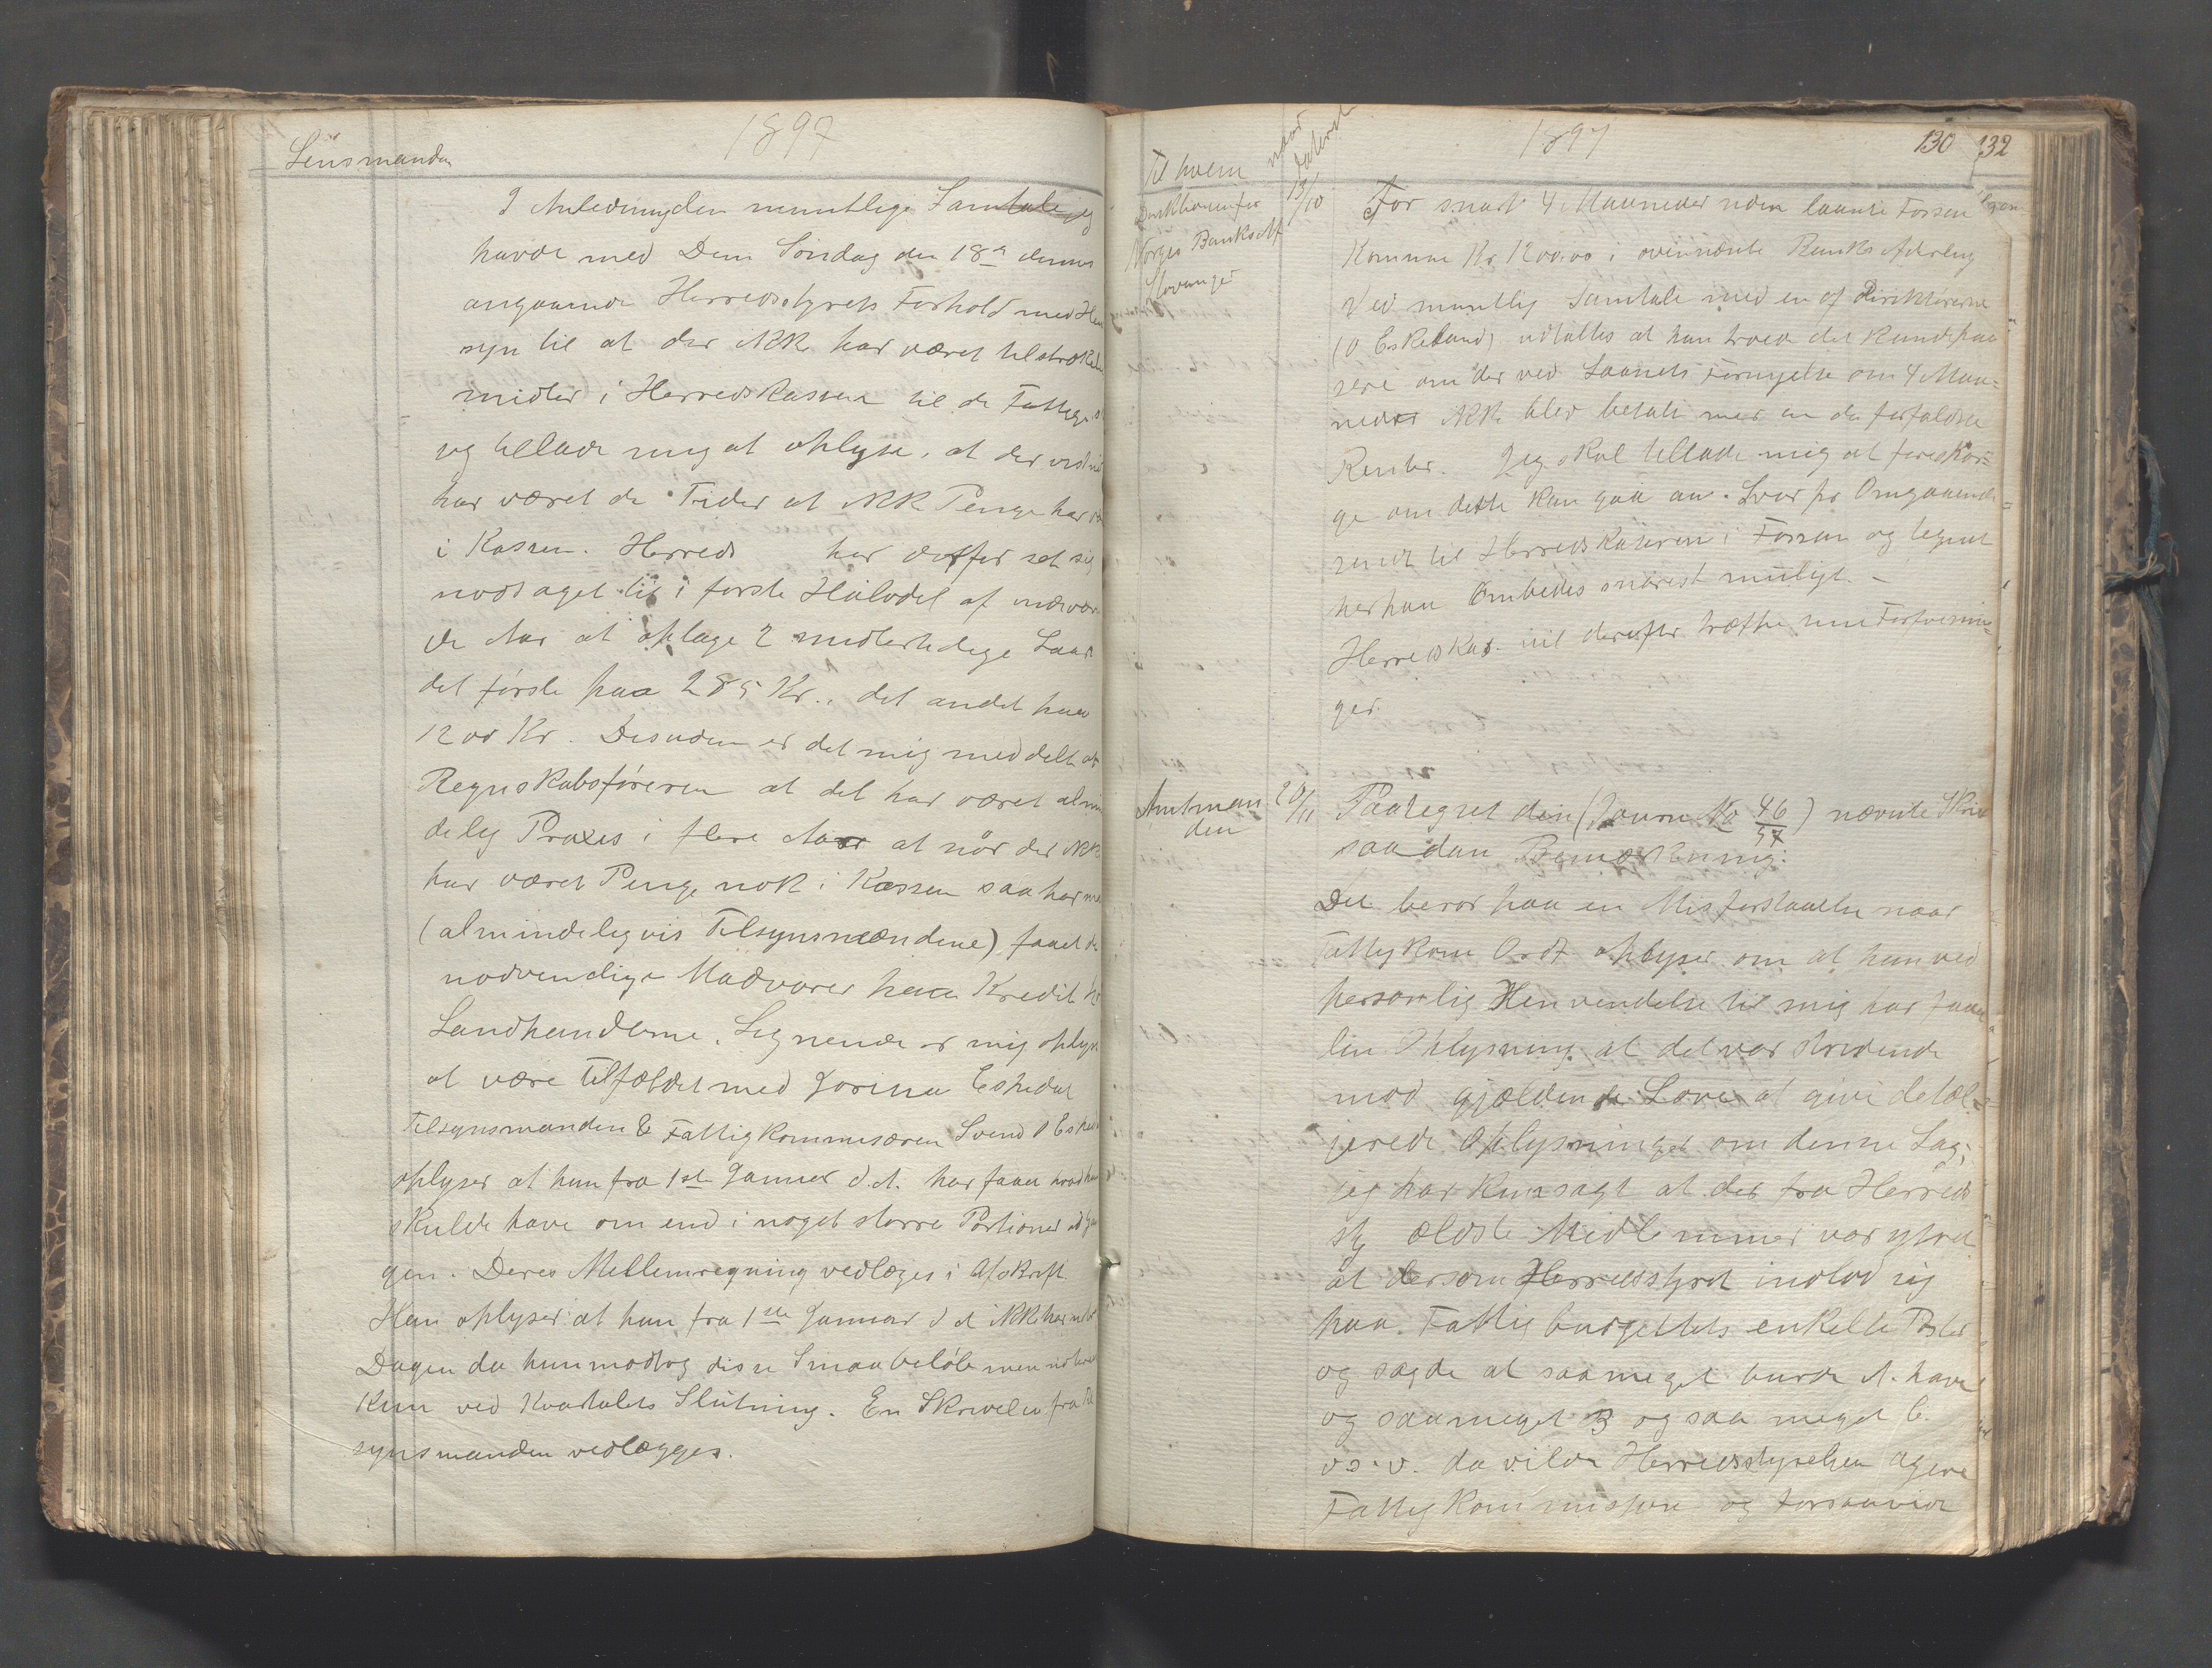 1897
Lensmanden
I Anledning den mundtlige Samtale jeg
havde med Dem Søndag den 18de dennes
angaaende Herredsstyrets Forhold med Hen
syn til at der ikke har været tilstrækkel
midler i Herredskassen til de Fattige
jeg tillade mig at oplyse, at der vist
har været de Tider at ikke Penge har
i Kassen. Herreds har derfor set sig
nødsaget til i første Halvdel af nærvær
de Aar at optage 2 midlertidige Laan
det første paa 285 Kr., det andet paa
1200 Kr. Desuden er det mig meddelt af
Regnskabsføreren at det har været almin
delig Praxis i flere Aar at når der ikke
har været Penge nok i Kassen saa har man
(almindeligvis Tilsynsmændene) faaet de
nødvendige Madvarer paa Kredit hos
Landhandlerne. Lignende er mig oplyst
at være tilfældet med Jorina Eskedal
Tilsynsmanden & Fattigkommisæren Svend
oplyser at hun fra 1ste Januar d.A. har faaet hvad hun
skulde have om end i noget større Portioner ad
gen. Deres Mellemregning vedlægges i Afskrift
Han oplyser at han fra 1ste Januar d A ikke har
Dagen da hun modtog disse Smaabeløb men
kun ved Kvartalets Slutning. En Skrivelse fra Til
synsmanden vedlægges.
1897
130 132
Til hvem
naar
dateret
Direktionen for
Norges Banks Afd
Stavanger
13/10
For snart 4 Maaneder siden laante Forsan
Komune Kr. 1200.00 i ovennævnte Banks Afdeling
Ved mundtlig Samtale med en af Direktørerne
(O Eskeland) udtaltes at han troede det kunde pas
sere om der ved Laanets Fornyelse om 4 Maa-
neder ikke blev betalt mer en de forfaldne
Renter. Jeg skal tillade mig at forespør-
ge om dette kan gaa an. Svar pr Omgaaende
sendt til Herredskasseren i Forsan og tegnet
herpaa Ombedes snarest muligt. –
Herredskas. vil derefter træffe sine Forføinin-
ger.
Amtman
den
20/11
Paategnet den (Journ No 46/97) nævnte Skriv
saadan Bemærkning:
Det beror paa en Misforstaaelse naar
Fattigkom Ordf. oplyser om at han ved
personlig Henvendelse til mig har faaet
den Oplysning at det var stridende
mod gjældende Love at give detal-
jerede Oplysninger om denne Sag;
jeg har kun sagt at det fra Herreds
st ældste Medlemmer var ytret
at dersom Herredsstyret indlod sig
paa Fattigbudgettets enkelte Poster
og sagde at saameget burde A. have
og saameget B og saa meget C.
o.s.v. da vilde Herredsstyrelsen agere
Fattigkommission og forsaavidt